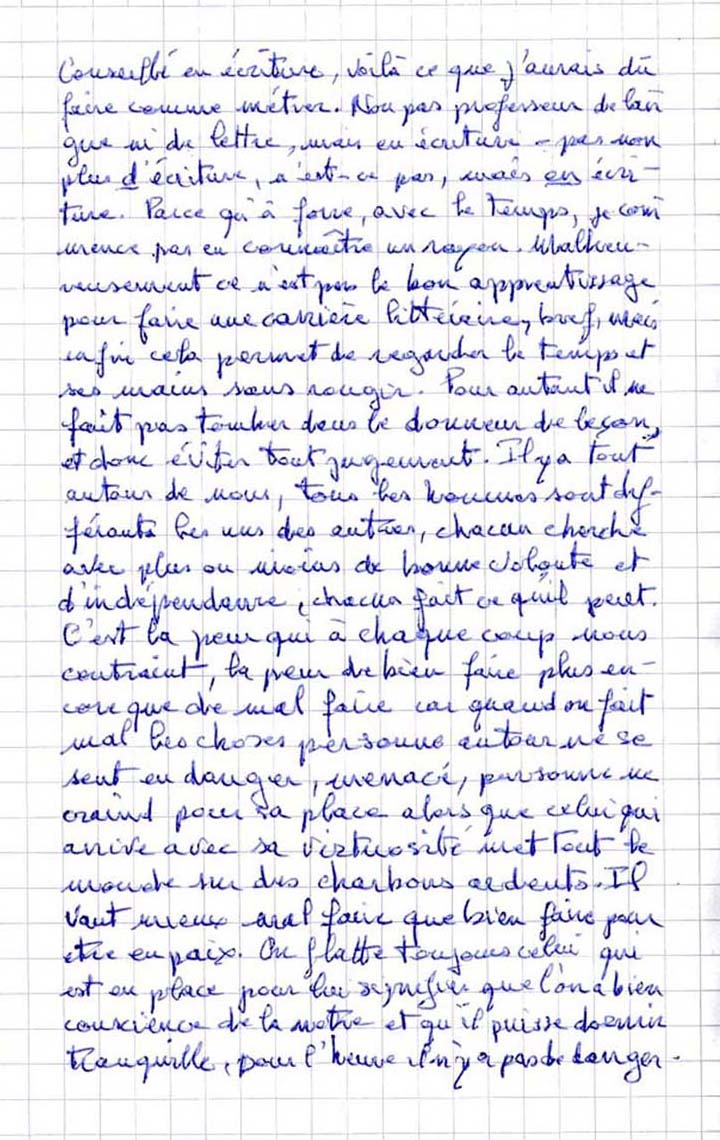 Conseillé en écriture, voilà ce que j'aurais dû
faire comme métier. Non pas professeur de lan
gue ni de lettre, mais en écriture - pas non
plus d'écriture, n'est-ce pas, mais en écri-
ture. Parce qu'à force, avec le temps, je com
mence par en connaître un rayon. Malheu-
reusement ce n'est pas le bon apprentissage
pour faire une carrière littéraire, bref, mais
enfin cela permet de regarder le temps et
ses mains sans rougir. Pour autant il ne
fait pas tomber dans le donneur de leçon,
et donc éviter tout jugement. Il y a tout
autour de nous, tous les hommes sont dif-
férents les uns des autres, chacun cherche
avec plus ou moins de bonne volonté et
d'indépendance, chacun fait ce qu'il peut.
C'est la peur qui à chaque coup nous
contraint, la peur de bien faire plus en-
core que de mal faire car quand on fait
mal les choses personne autour ne se
sent en danger, menacé, personne ne
craind pour sa place alors que celui qui
arrive avec sa virtuosité met tout le
monde sur des charbons ardents. Il
vaut mieux mal faire que bien faire pour
etre en paix. On flatte toujours celui qui
est en place pour lui signifier que l'on a bien
conscience de la notre et qu'il puisse dormir
tranquille, pour l'heure il n'y a pas de danger.